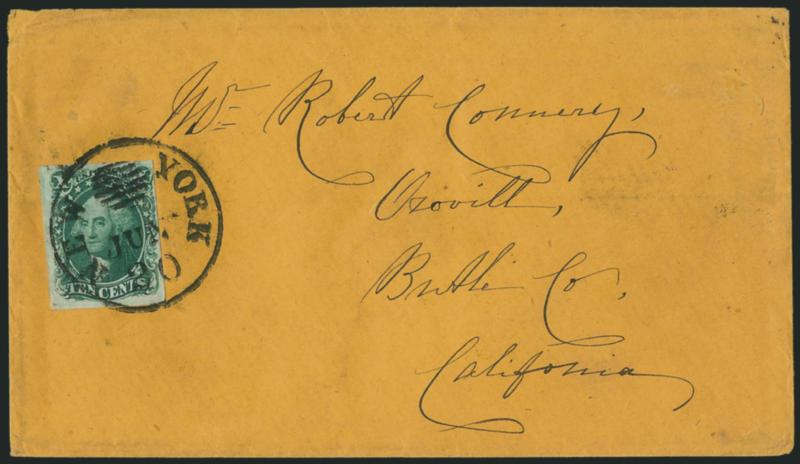 Mr Robert Connery,
Oroville,
Butte Co,
California
NEW YORK
JU
20
TEN CENTS